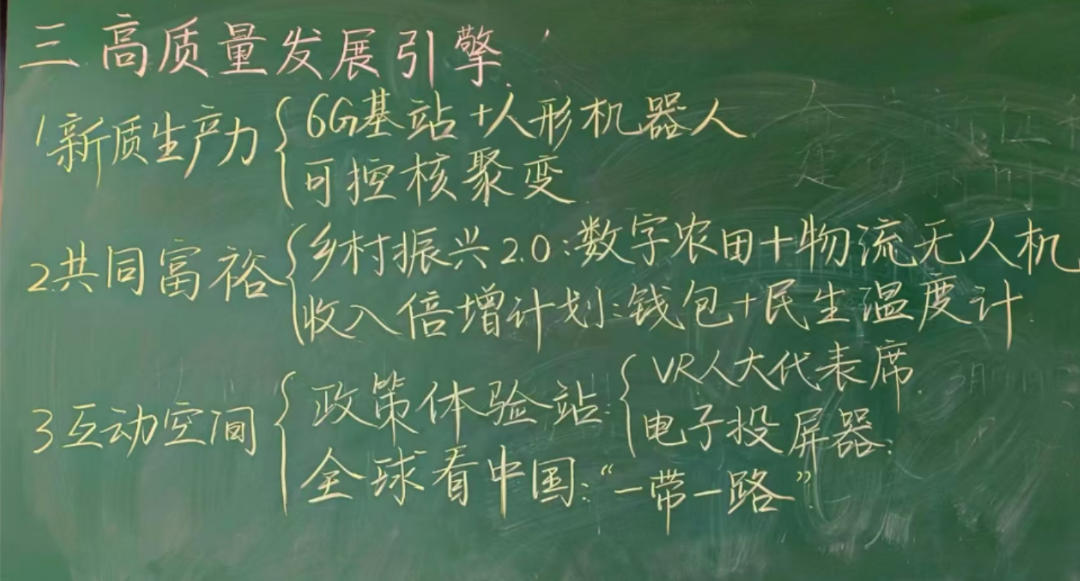 三 高质量发展引擎
1 新质生产力
6G基站+人形机器人
可控核聚变
2.共同富裕
乡村振兴2.0:数字农田+物流无人机
收入倍增计划:钱包+民生温度计
3互动空间
政策体验站:
VR人大代表席
电子投屏器:
全球看中国:“一带一路”